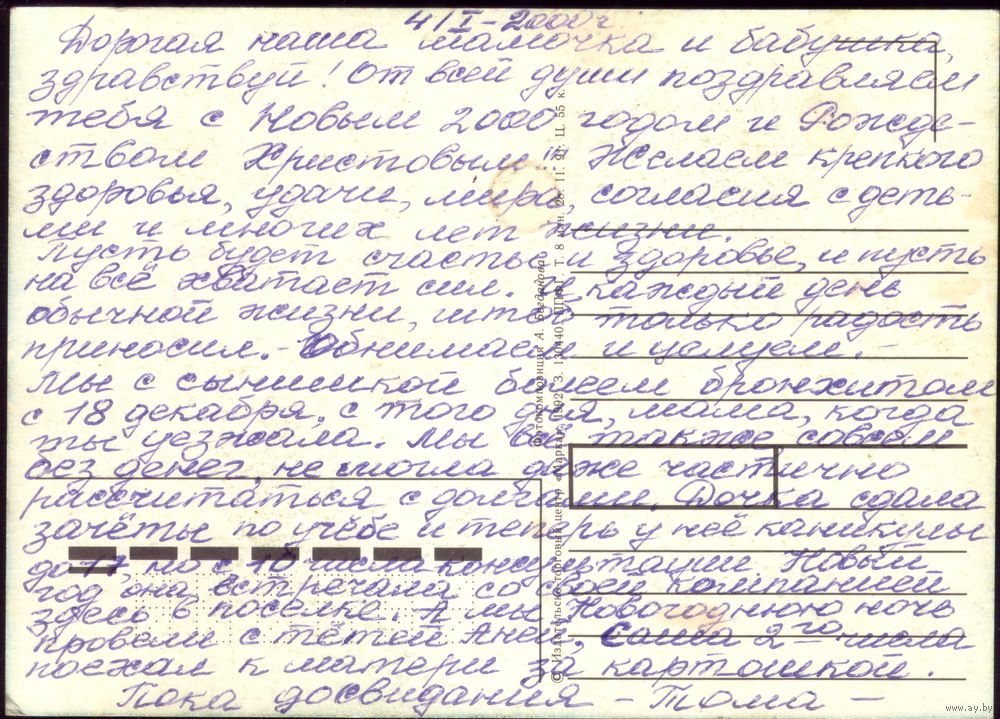 4/I-2000 г.
Дорогая наша мамочка и бабушка,
здравствуй! От всей души поздравляем
тебя с Новым 2000 годом и Рожде-
ством Христовым. Желаем крепкого
здоровья, удачи, мира, согласия с деть-
ми и многих лет жизни.
Пусть будет счастье и здоровье, и пусть
на всё хватает сил. И каждый день
обычной жизни, чтоб только радость
приносил. - Обнимаем и целуем. -
Мы с сынишкой болеем бронхитом
с 18 декабря, с того дня, мама, когда
ты уезжала. Мы все также совсем
без денег, не смогла даже частично
рассчитаться с долгами. Дочка сдала
зачёты по учёбе и теперь у неё каникулы
до 17, но с 10 числа консультации Новый
год она встречала со своей компанией
здесь в поселке. А мы Новогоднюю ночь
провели с тётей Аней, Саша 2го числа
поехал к матери за картошкой.
Пока досвидания - Тома -
© Издательско-торговый центр «Марка», 1992. З. 130440. ППФГ. Т. 8 млн. 26. 11. 91. Ц. 55 к.
Фотокомпозиция А. Богданова
www.ay.by